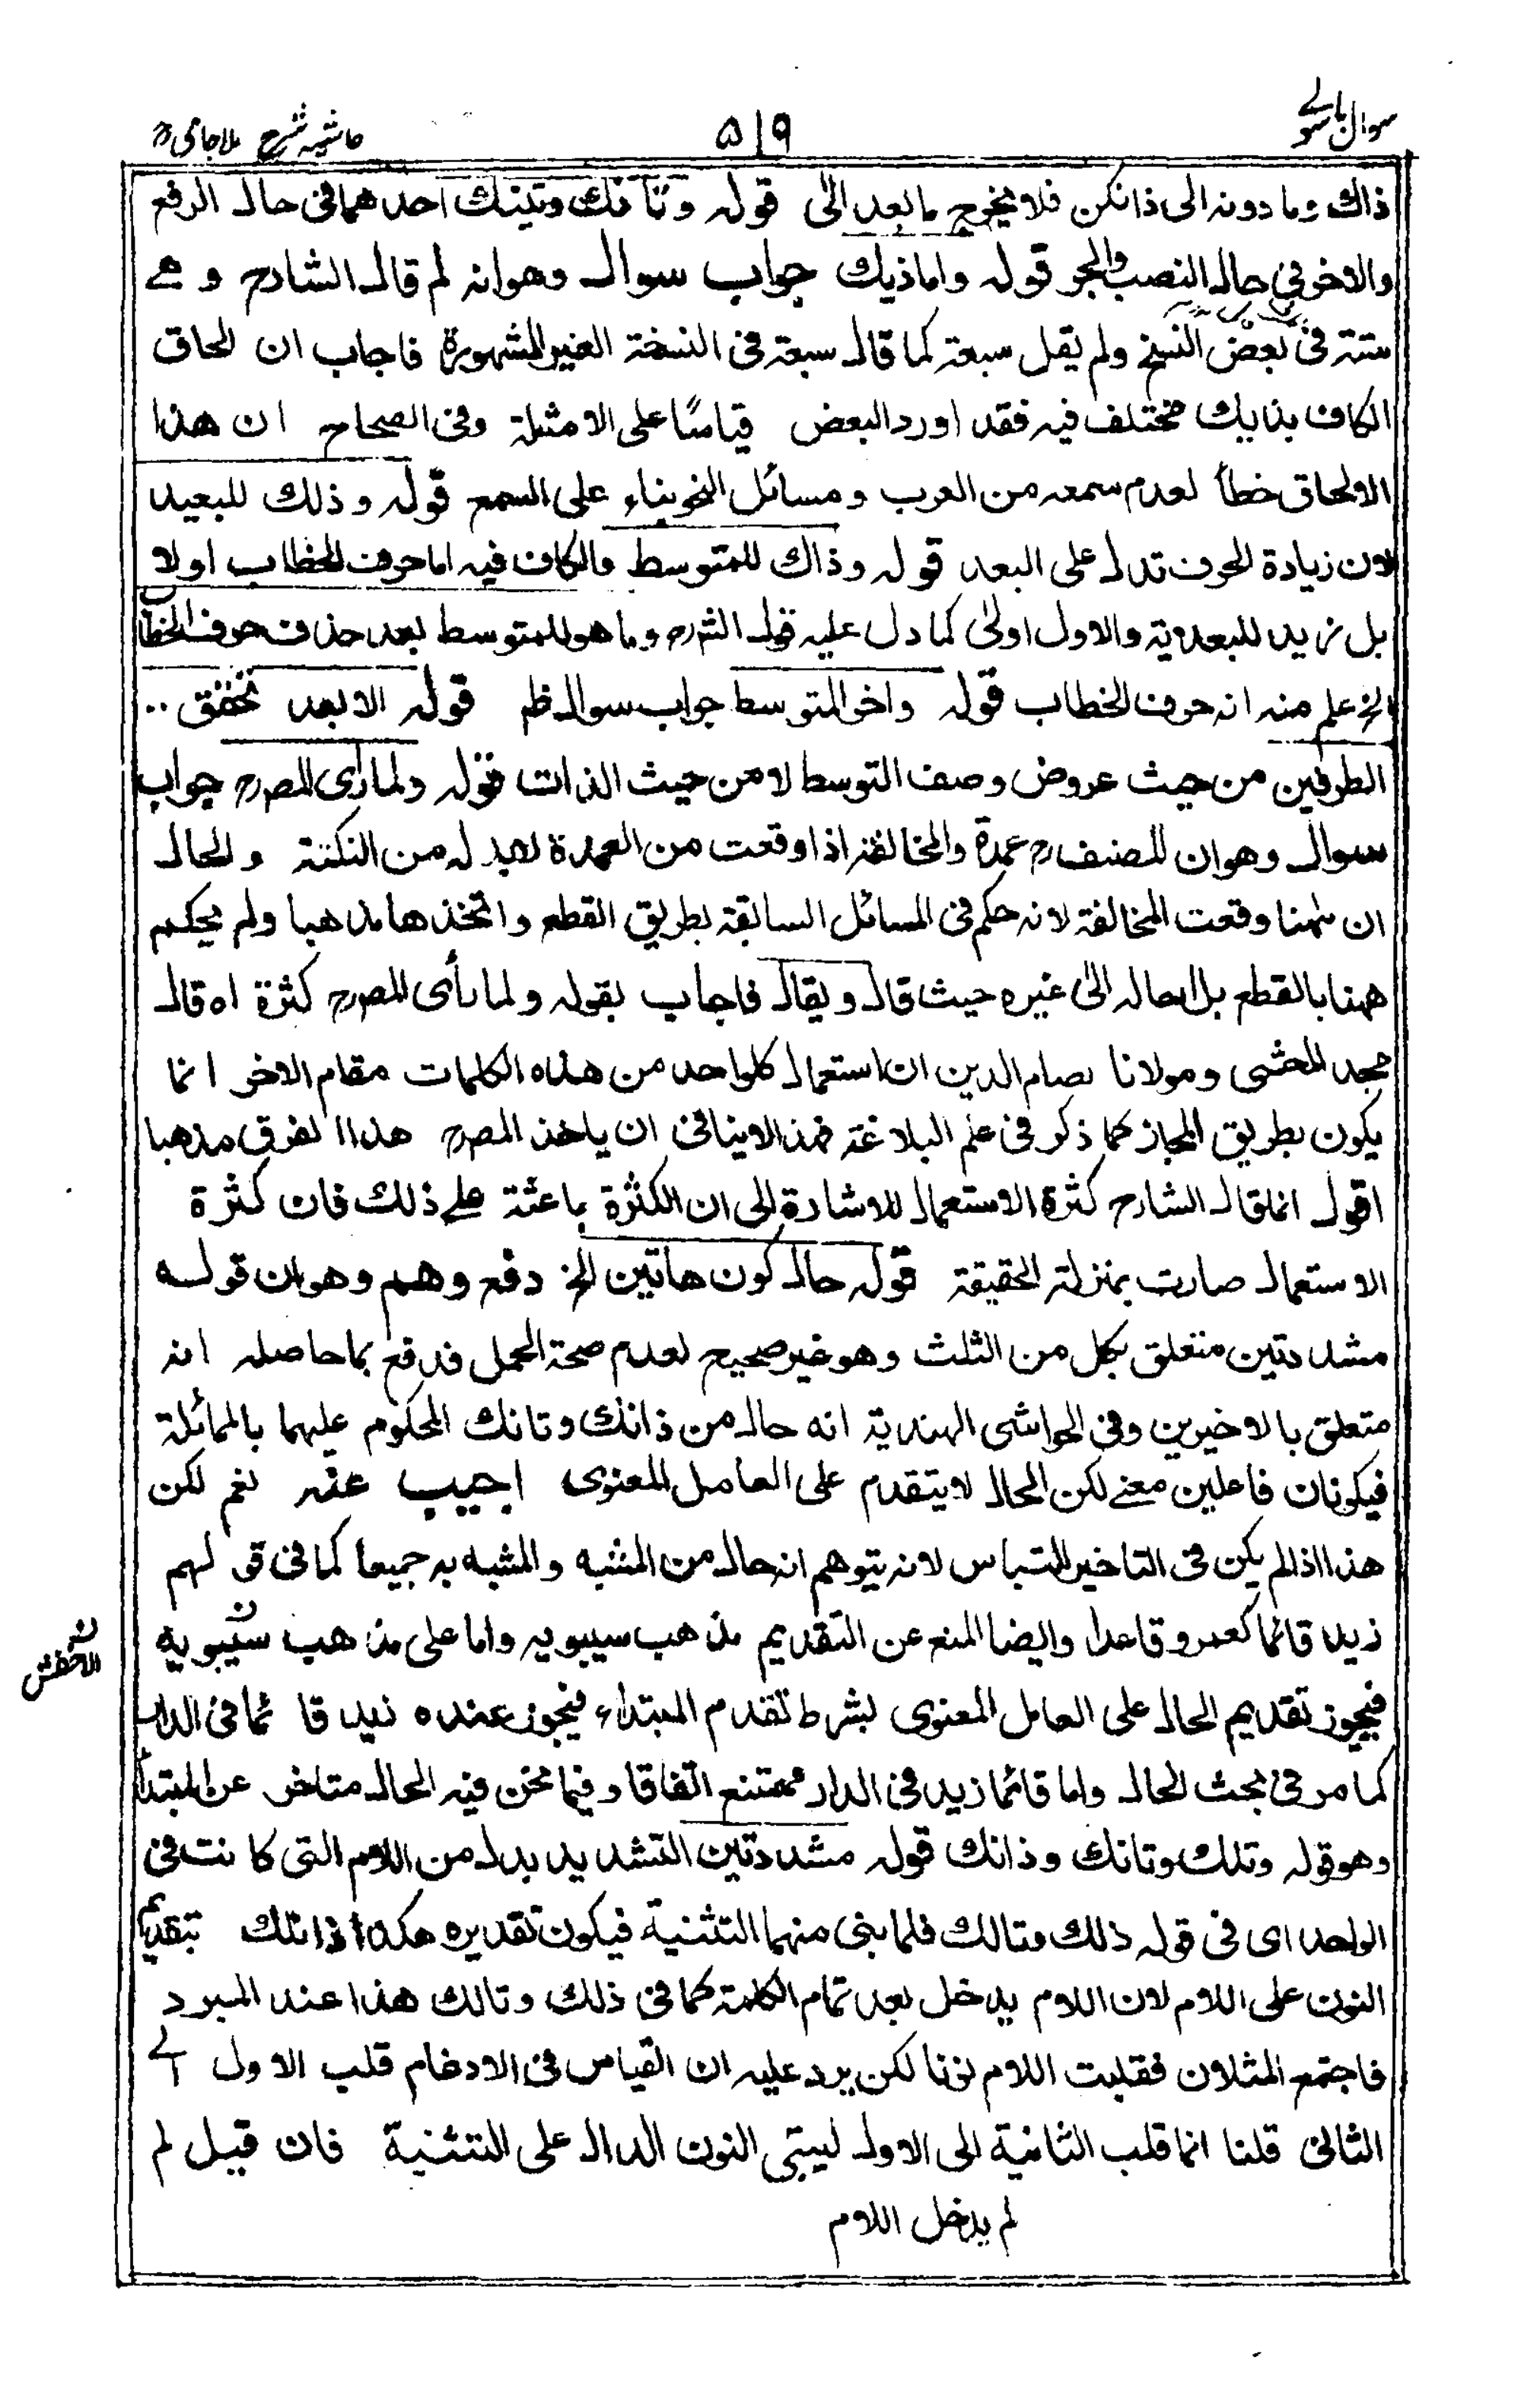 سوال باسولے
۵۱۹
حاشیہ شرح ملا جامی
ذاك وما دونه الى ذانكن فلا يخرج ما بعد الى قوله وتانك وتينك احدهما فى حال الرفع
والاخر فى حال النصب والجر قوله واما ذيك جواب سوال وهو انه لم قال الشارح وهے
ستة فى بعض النسخ ولم يقل سبعة كما قال سبعة فى النسخة الغير المشهورة فاجاب ان الحاق
الكاف بذايك مختلف فيه فقد اورد البعض قياسًا على الامثلة وفى الصحاح ان هذا
الالحاق خطأ لعدم سمعه من العرب ومسائل النحو بناء على السمع قوله وذلك للبعيد
لان زيادة الحرف تدل على البعد قوله وذاك للمتوسط والكاف فيه اما حرف الخطاب اولا
بل زيد للبعدية والاول اولىٰ كما دل عليه قول الشرح وما هو للمتوسط بعد حذف حرف الخطاب
الخ علم منه انه حرف الخطاب قوله واخر المتوسط جواب سوال ظم قوله الا بعد تحقق ..
الطرفين من حيث عروض وصف التوسط لا من حيث الذات قوله ولما رأى المصرح جواب
سوال وهو ان للمصنف رح عمدة والمخالفة اذا وقعت من العمدة لابد له من النكتة والحال
ان ههنا وقعت المخالفة لانه حكم فى المسائل السابقة بطريق القطع واتخذها مذهبا ولم يحكم
ههنا بالقطع بل احاله الىٰ غيره حيث قال ويقال فاجاب بقوله ولما رأى المصرح كثرة اه قال
جد المحشى ومولانا عصام الدين ان استعمال كلواحد من هذه الكلمات مقام الاخر انما
يكون بطريق المجاز كما ذكر فى علم البلاغة فهذا لاينافى ان ياخذ المصرح هذا الفرق مذهبا
اقول انما قال الشارح كثرة الاستعمال للاشارة الى ان الكثرة باعثة علے ذلك فان كثرة
الاستعمال صارت بمنزلة الحقيقة قوله حال كون هاتين الخ دفع وهم وهو ان قوله
مشددتين متعلق بكل من الثلث وهو غير صحيح لعدم صحة الحمل فدفع بما حاصله انه
متعلق بالاخيرين وفى الحواشى الهندية انه حال من ذانك وتانك المحكوم عليهما بالمماثلة
فيكونان فاعلين معنے لكن الحال لا يتقدم على العامل المعنوى اجيب عنه نعم لكن
هذا اذا لم يكن فى التاخير التباس لانه يتوهم انه حال من المشبه والمشبه به جميعا كما فى قولهم
زيد قائما كعمرو قاعدا وايضا المنع عن التقديم مذهب سيبويه واما على مذهب سيبويه
ن الاخفش
فيجوز تقديم الحال على العامل المعنوى بشرط تقدم المبتداء فيجوز عنده زيد قائما فى الدار
كما مر فى بحث الحال واما قائما زيد فى الدار فممتنع اتفاقا وفيما نحن فيه الحال متاخر عن المبتدأ
وهو قوله وتلك وتانك وذانك قوله مشددتين التشديد بدل من اللام التى كانت فى
الواحد اى فى قوله ذلك وتالك فلما بنى منهما التثنية فيكون تقديره هكذا ذانلك بتقديم
النون على اللام لان اللام يدخل بعد تمام الكلمة كما فى ذلك وتالك هذا عند المبرد
فاجتمع المثلان فقلبت اللام نونا لكن يرد عليه ان القياس فى الادغام قلب الاول الے
الثانى قلنا انما قلب الثانية الى الاول ليبقى النون الدال على التثنية فان قيل لم
لم يدخل اللام